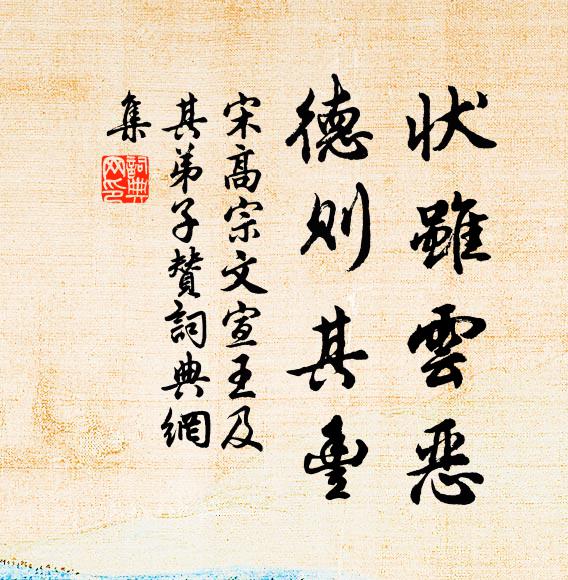 状雖雲惡
德则其豐
宋高宗文宣王及
其弟子贊詞典網
集
詞典網印